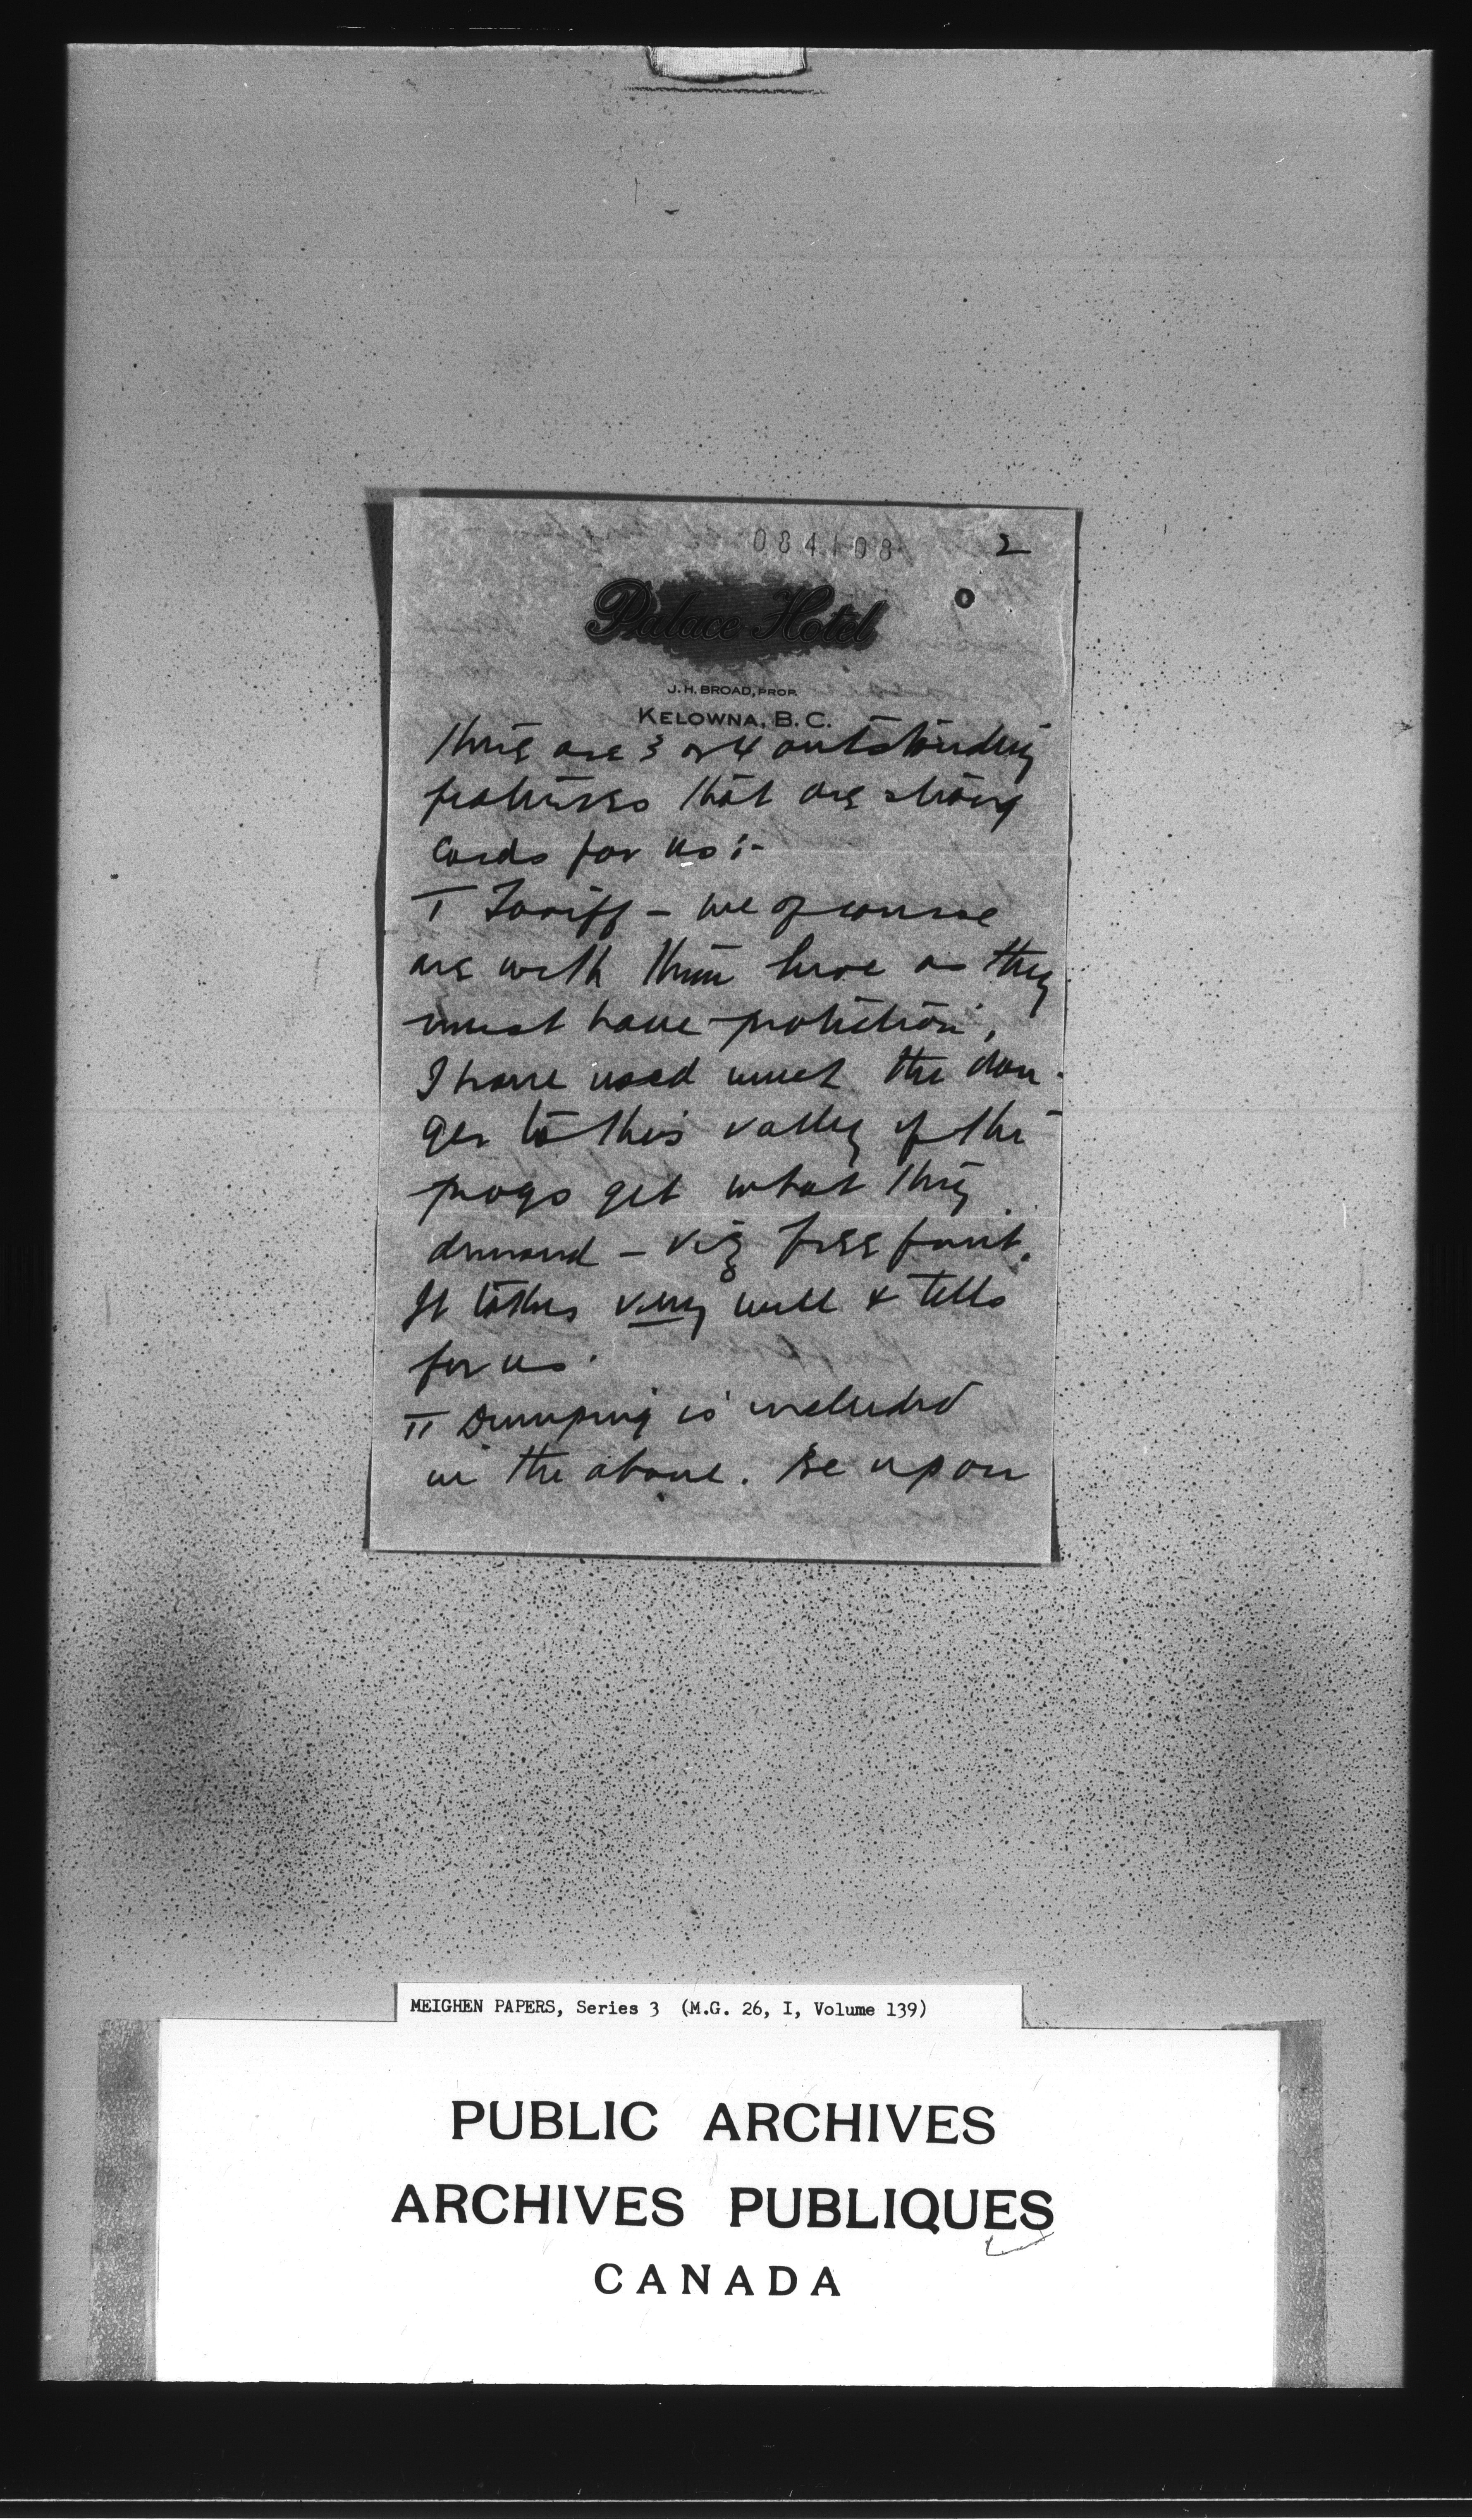 084108
2
Palace Hotel
J. H. BROAD, PROP.
KELOWNA, B. C.
There are 3 or 4 outstanding
features that are strong
cards for us :-
I Tariff - we of course
are with them here as they
must have protection.
I have used much the dan-
ger to this valley if the
progs get what they
demand - viz free fruit.
It takes very well & tells
for us.
II Dumping is included
in the above. Be up on
MEIGHEN PAPERS, Series 3 (M.G. 26, I, Volume 139)
PUBLIC ARCHIVES
ARCHIVES PUBLIQUES
CANADA